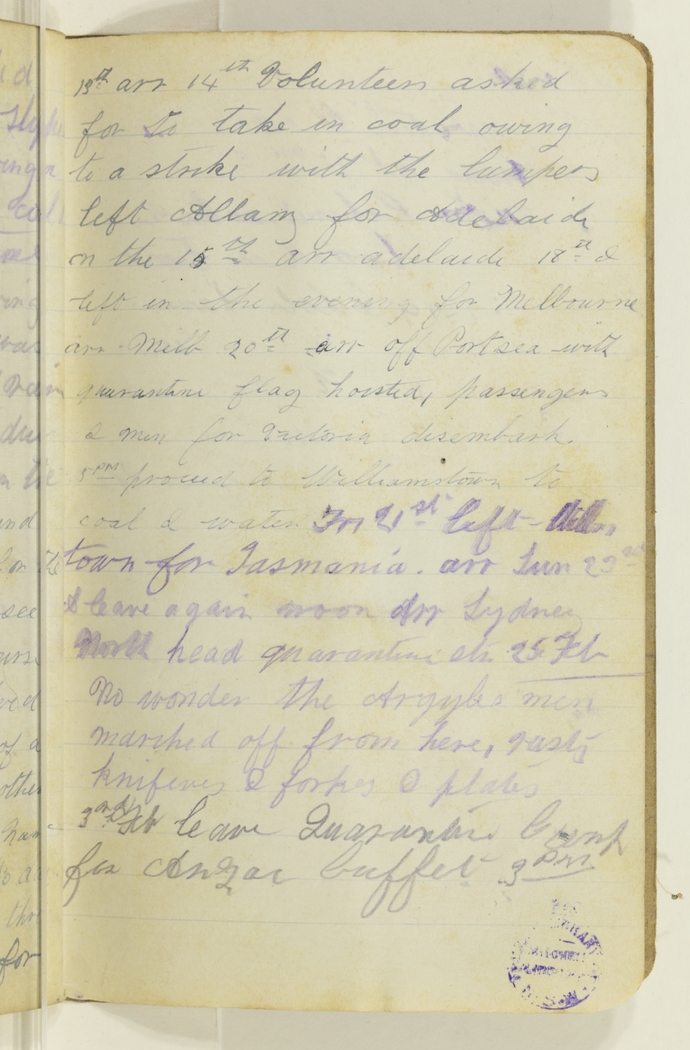 13th arr 14th Volunteers asked
for to take in coal owing
to a strike with the lumpers
left Albany for Adelaide
on the 15th arr adelaide 18th &
left in the evening for Melbourne
arr Melb 20th arr off Portsea with
quarantine flag hoisted, passengers
& men for Victoria disembark.
5 pm proceed to Williamstown to
coal & water Fri 21st left
town for Tasmania. arr Sun 23rd
& leave again noon arr Sydney
North head quarantine stn 25 Feb
No wonder the Argyles men
marched off from here, rusty
knifeves & forkes & plates
3rd leave Quarantine Camp
for Anzac buffet 3 pm